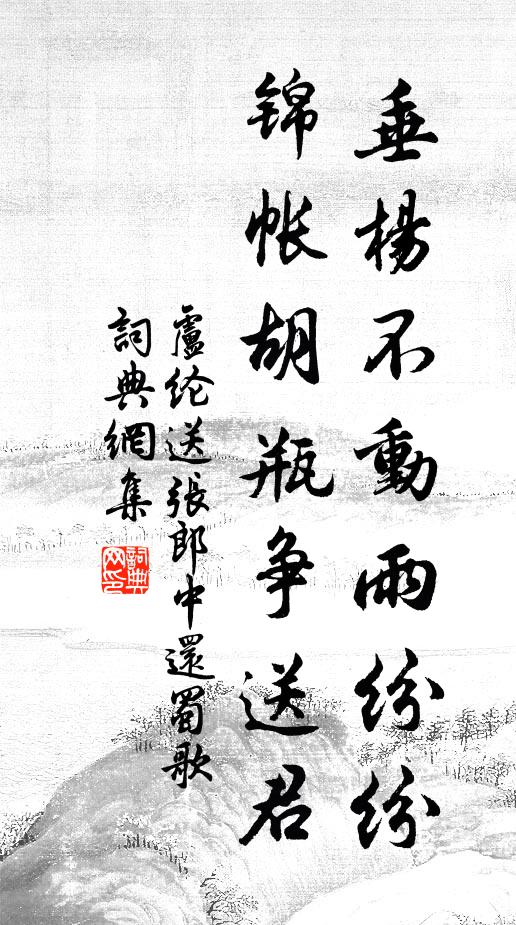 垂楊不動雨紛紛
錦帐胡瓶争送君
盧纶送張郎中還蜀歌
詞典網集
詞典网印